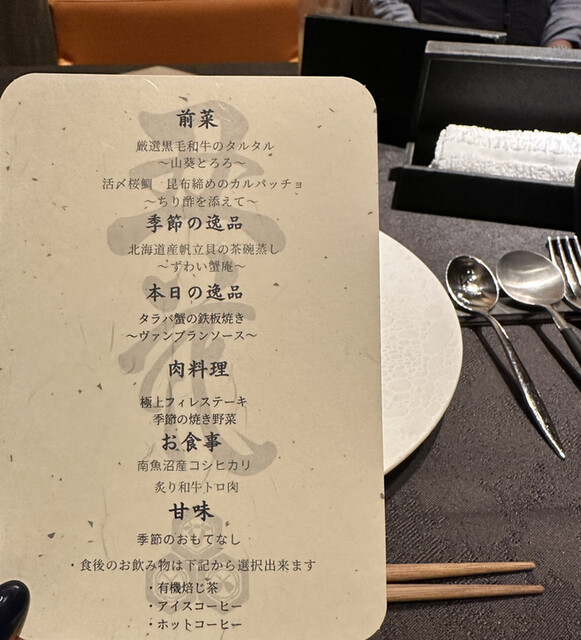 前菜
厳選黒毛和牛のタルタル
〜山葵とろろ〜
活〆桜鯛　昆布締めのカルパッチョ
〜ちり酢を添えて〜
季節の逸品
北海道産帆立貝の茶碗蒸し
〜ずわい蟹庵〜
本日の逸品
タラバ蟹の鉄板焼き
〜ヴァンブランソース〜
肉料理
極上フィレステーキ
季節の焼き野菜
お食事
南魚沼産コシヒカリ
炙り和牛トロ肉
甘味
季節のおもてなし
・食後のお飲み物は下記から選択出来ます
・有機焙じ茶
・アイスコーヒー
・ホットコーヒー